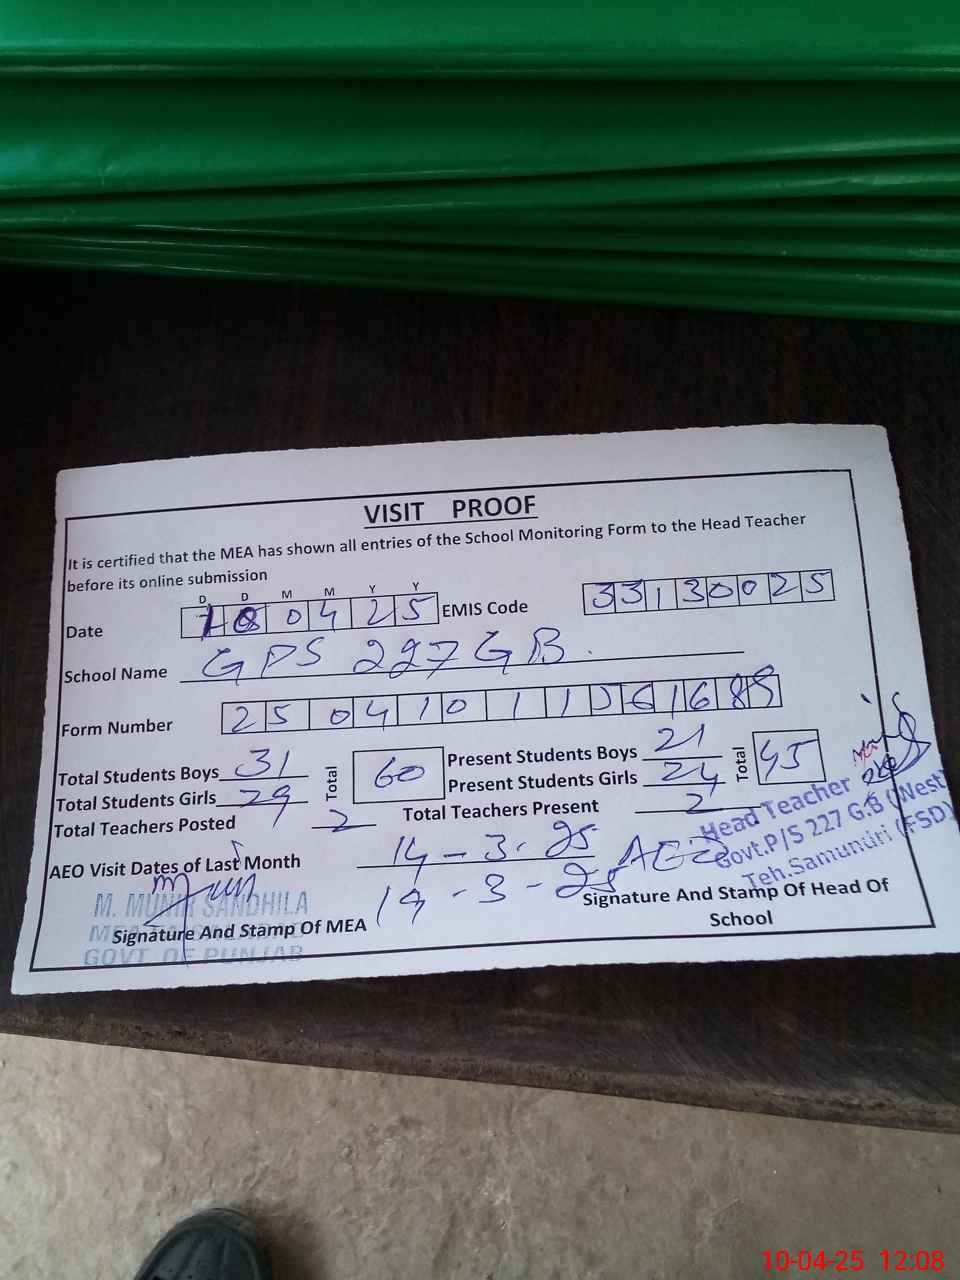 VISIT PROOF
It is certified that the MEA has shown all entries of the School Monitoring Form to the Head Teacher
before its online submission
D D M M Y Y
Date 10 04 25 EMIS Code 33130025
School Name GPS 227 GB.
Form Number
Total Students Boys 31 Total 60 Present Students Boys 21 Total 45
Total Students Girls 29 Present Students Girls 24
Total Teachers Posted 2 Total Teachers Present 2
AEO Visit Dates of Last Month 14-3-25 AEO
19-3-25
Head Teacher
Govt.P/S 227 G.B (West)
Teh.Samundri (FSD)
M. MUNIR SANDHILA
Signature And Stamp Of MEA
GOVT OF PUNJAB
Signature And Stamp Of Head Of
School
10-04-25 12:08